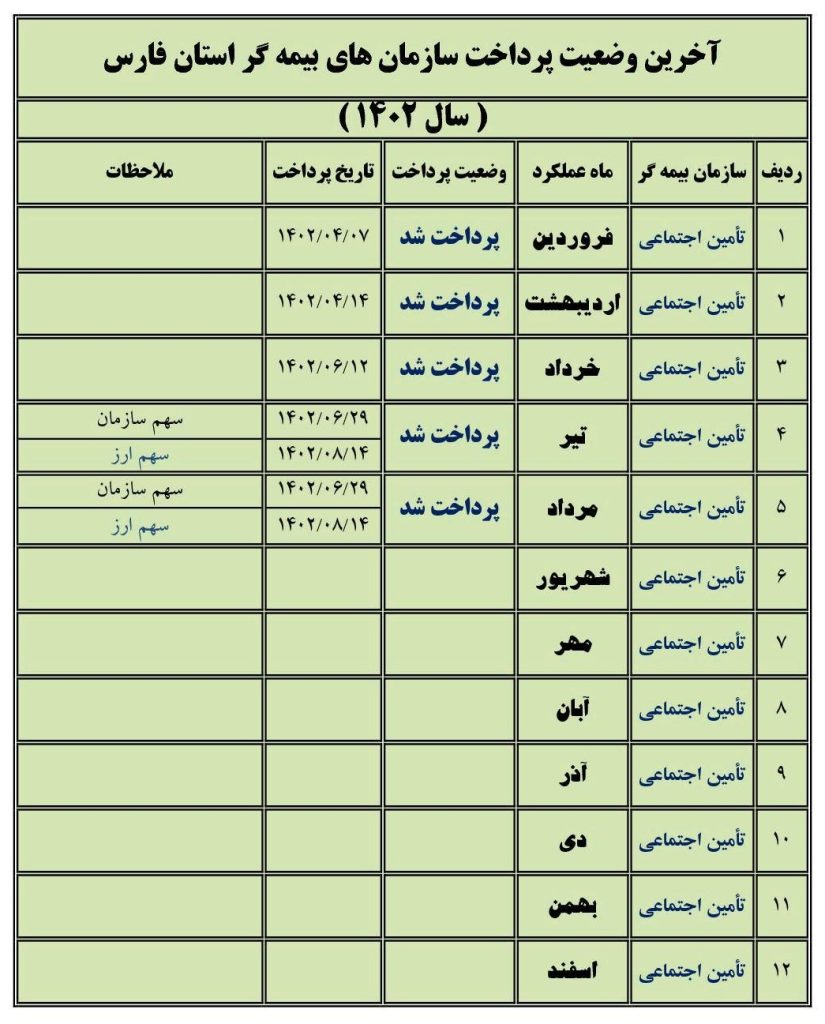 آخرین وضعیت پرداخت سازمان های بیمه گر استان فارس
( سال ۱۴۰۲ )
ردیف سازمان بیمه گر ماه عملکرد وضعیت پرداخت تاریخ پرداخت ملاحظات
۱ تأمین اجتماعی فروردین پرداخت شد ۱۴۰۲/۰۴/۰۷
۲ تأمین اجتماعی اردیبهشت پرداخت شد ۱۴۰۲/۰۴/۱۴
۳ تأمین اجتماعی خرداد پرداخت شد ۱۴۰۲/۰۶/۱۲
۴ تأمین اجتماعی تیر پرداخت شد ۱۴۰۲/۰۶/۲۹ سهم سازمان
۱۴۰۲/۰۸/۱۴ سهم ارز
۵ تأمین اجتماعی مرداد پرداخت شد ۱۴۰۲/۰۶/۲۹ سهم سازمان
۱۴۰۲/۰۸/۱۴ سهم ارز
۶ تأمین اجتماعی شهریور
۷ تأمین اجتماعی مهر
۸ تأمین اجتماعی آبان
۹ تأمین اجتماعی آذر
۱۰ تأمین اجتماعی دی
۱۱ تأمین اجتماعی بهمن
۱۲ تأمین اجتماعی اسفند